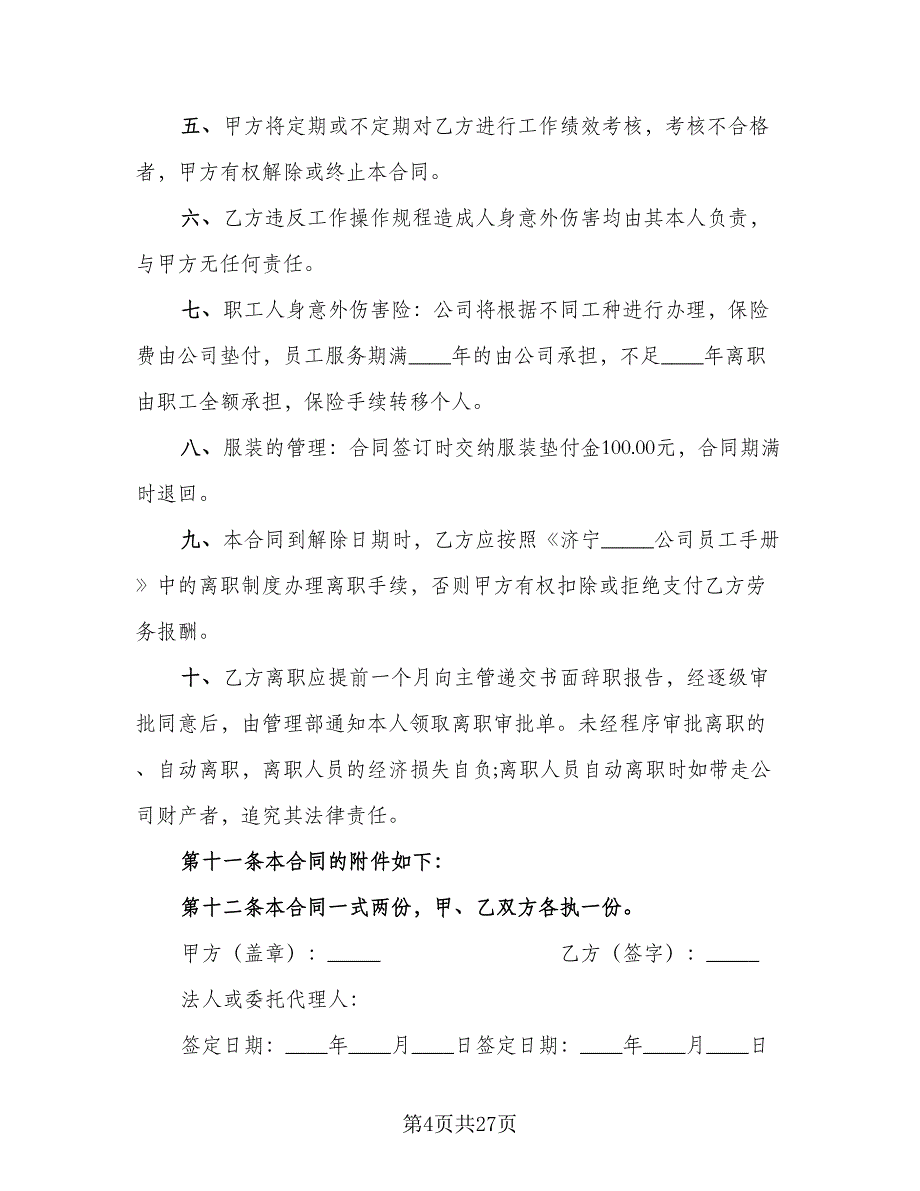 五、甲方将定期或不定期对乙方进行工作绩效考核，考核不合格
者，甲方有权解除或终止本合同。
六、乙方违反工作操作规程造成人身意外伤害均由其本人负责，
与甲方无任何责任。
七、职工人身意外伤害险：公司将根据不同工种进行办理，保险
费由公司垫付，员工服务期满____年的由公司承担，不足____年离职
由职工全额承担，保险手续转移个人。
八、服装的管理：合同签订时交纳服装垫付金100.00元，合同期满
时退回。
九、本合同到解除日期时，乙方应按照《济宁_____公司员工手册
》中的离职制度办理离职手续，否则甲方有权扣除或拒绝支付乙方劳
务报酬。
十、乙方离职应提前一个月向主管递交书面辞职报告，经逐级审
批同意后，由管理部通知本人领取离职审批单。未经程序审批离职的
、自动离职，离职人员的经济损失自负;离职人员自动离职时如带走公
司财产者，追究其法律责任。
第十一条本合同的附件如下：
第十二条本合同一式两份，甲、乙双方各执一份。
甲方（盖章）：_____ 乙方（签字）：_____
法人或委托代理人：
签定日期：____年____月____日签定日期：____年____月____日
第4页共27页